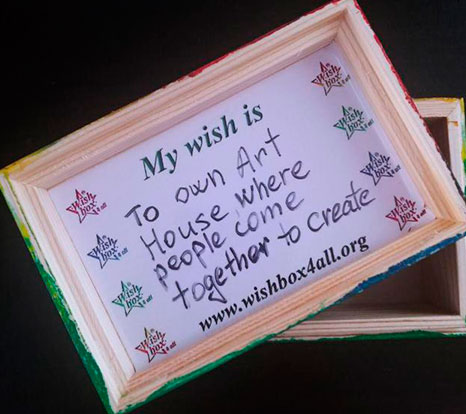 My wish is
To own Art
House where
people come
together to create
www.wishbox4all.org
A
Wish
box
4 all
A
Wish
box
4 all
A
Wish
box
4 all
A
Wish
box
4 all
A
Wish
box
4 all
A
Wish
box
4 all
A
Wish
box
4 all
A
Wish
box
4 all